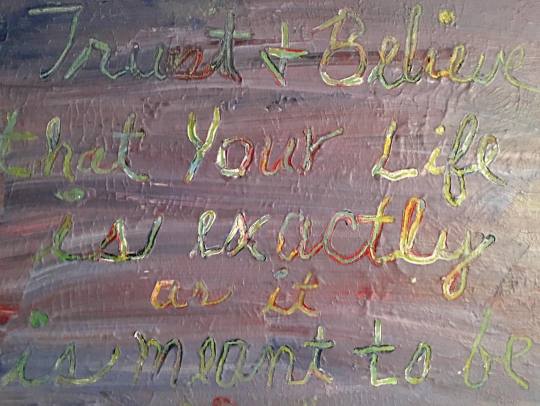 Trust + Believe
that Your Life
is exactly
as it
is meant to be